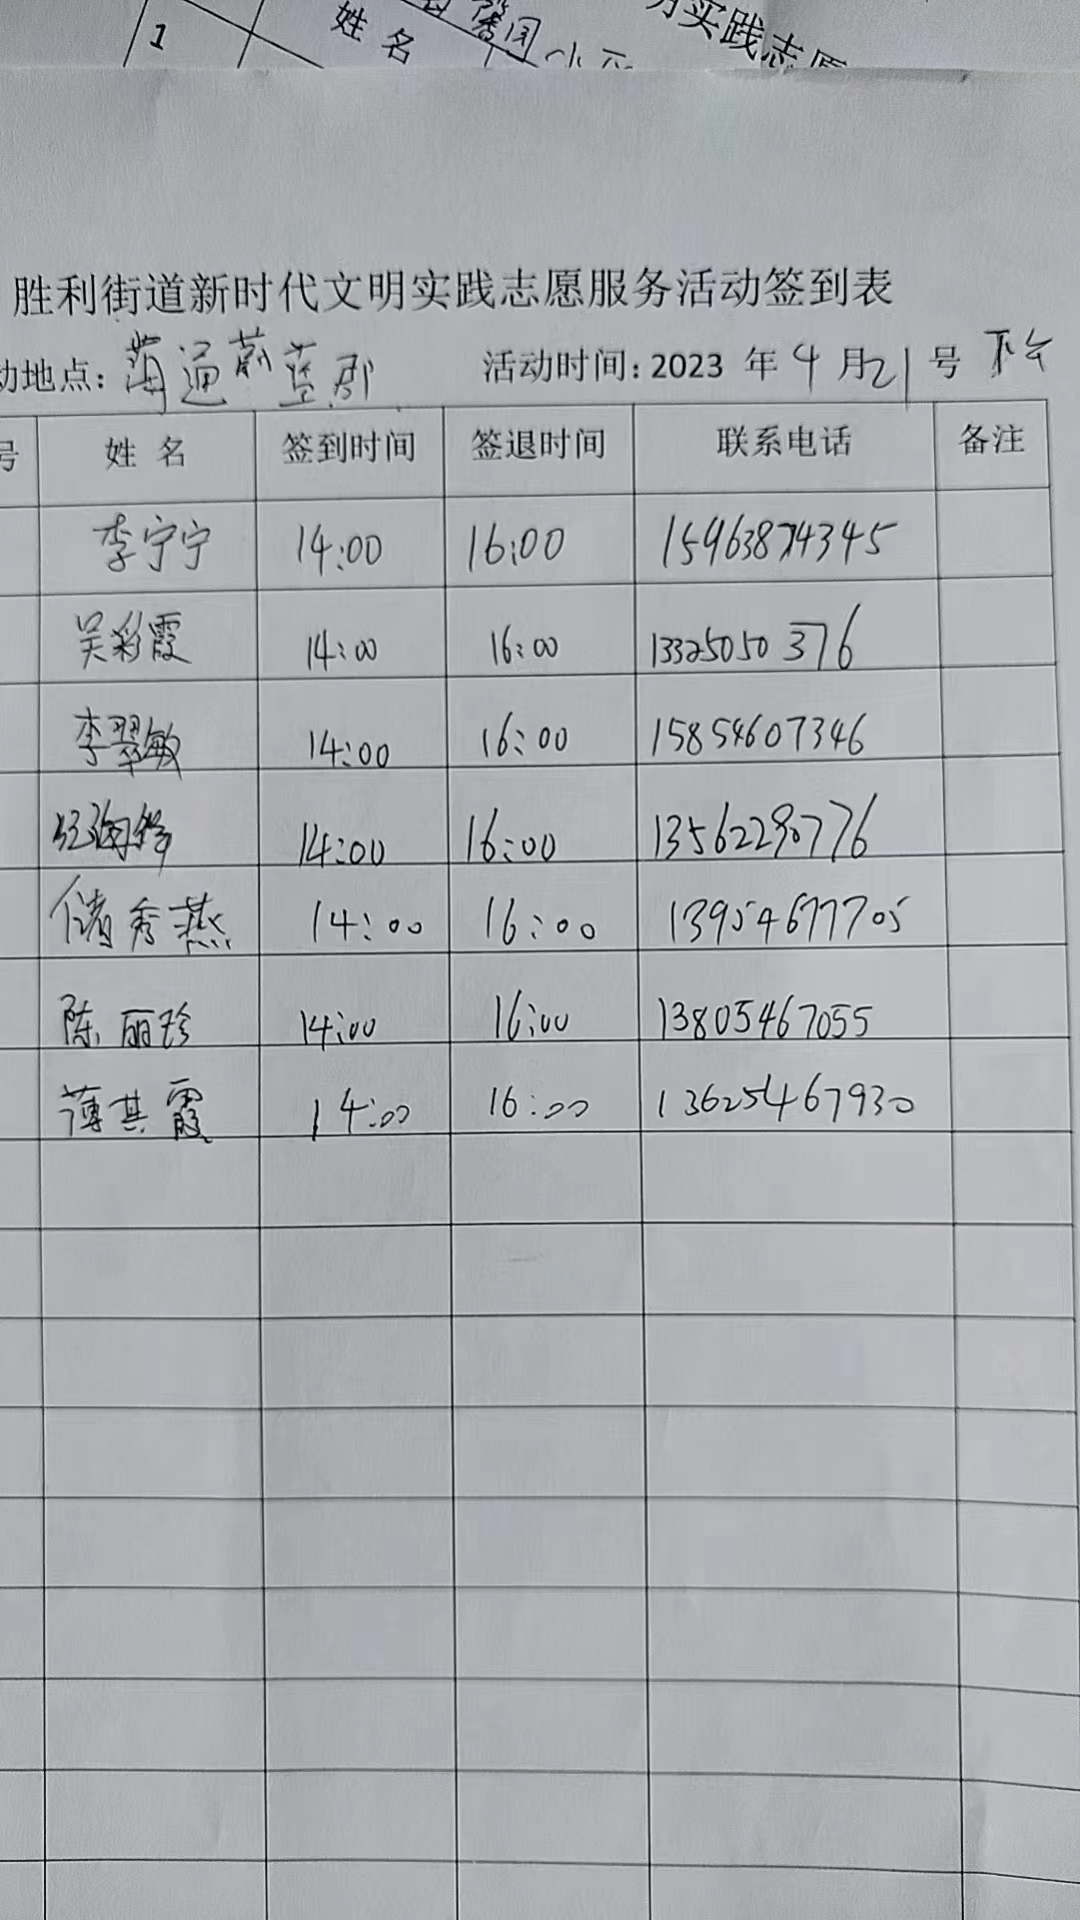 1 姓 名
实践志愿
胜利街道新时代文明实践志愿服务活动签到表
动地点: 海通蔚蓝郡 活动时间: 2023 年 4 月 21 号 下午
号 姓 名 签到时间 签退时间 联系电话 备注
李宁宁 14:00 16:00 15963874345
吴彩霞 14:00 16:00 13325050376
李翠敏 14:00 16:00 15854607346
14:00 16:00 13562290776
储秀燕 14:00 16:00 13954677705
陈丽珍 14:00 16:00 13805467055
薄其霞 14:00 16:00 13625467930